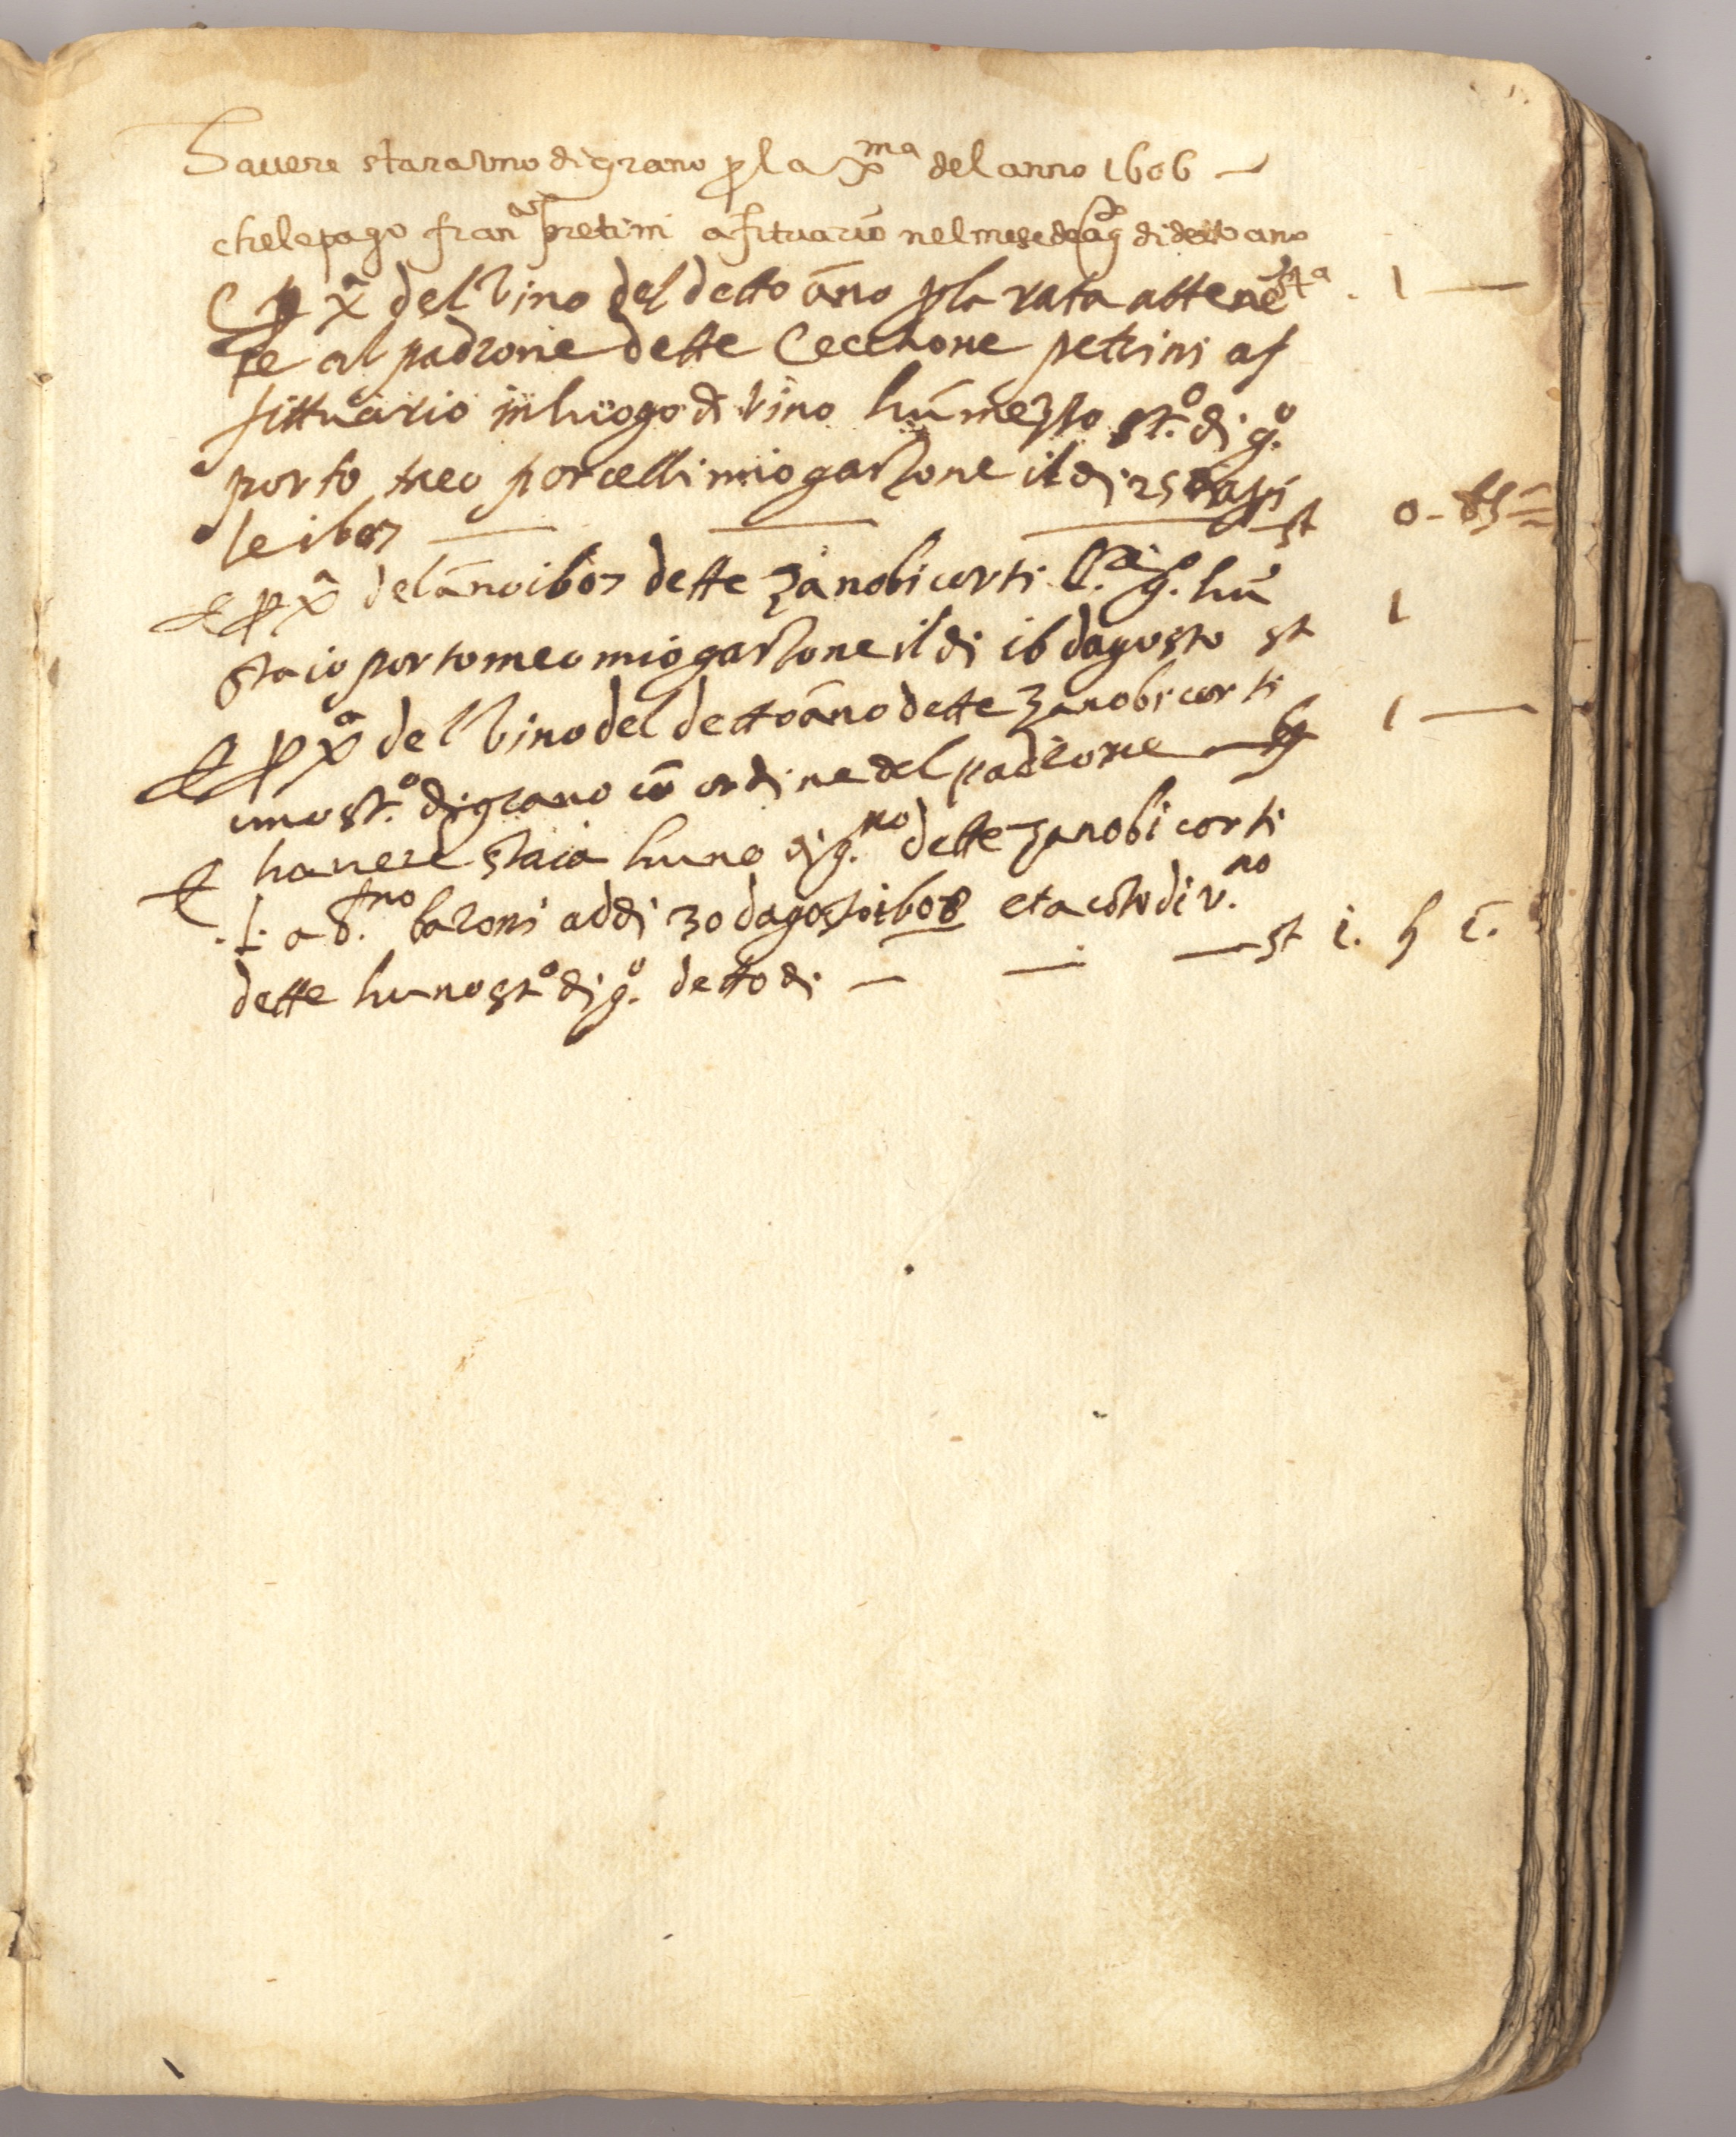 havere stara uno di grano p la xma del anno 1606 —
che le pago franco pretini afituario nel mese de ag di detto ano
E p xa del vino del detto ano p la rata attene sta . 1 —
te al padrone dette Cecchone petrini af
fittuario in luogo di vino hu mezzo sto. di go.
porto meo porcelli mio garzone il di 25
le 1607 — — — st 0 -
E p xa del ano 1607 dette zanobi corti go. hu
staio porto meo mio garzone il di 16 dagosto st 1
E p xa del vino del detto ano dette zanobi corti
uno sto. di grano co ordine del padrone — 1 —
E havere staia huno di g.no dette zanobi corti
baroni addi 30 dagosto 1608 et a coto di v.no
dette huno sto di go. detto di — — — st i.